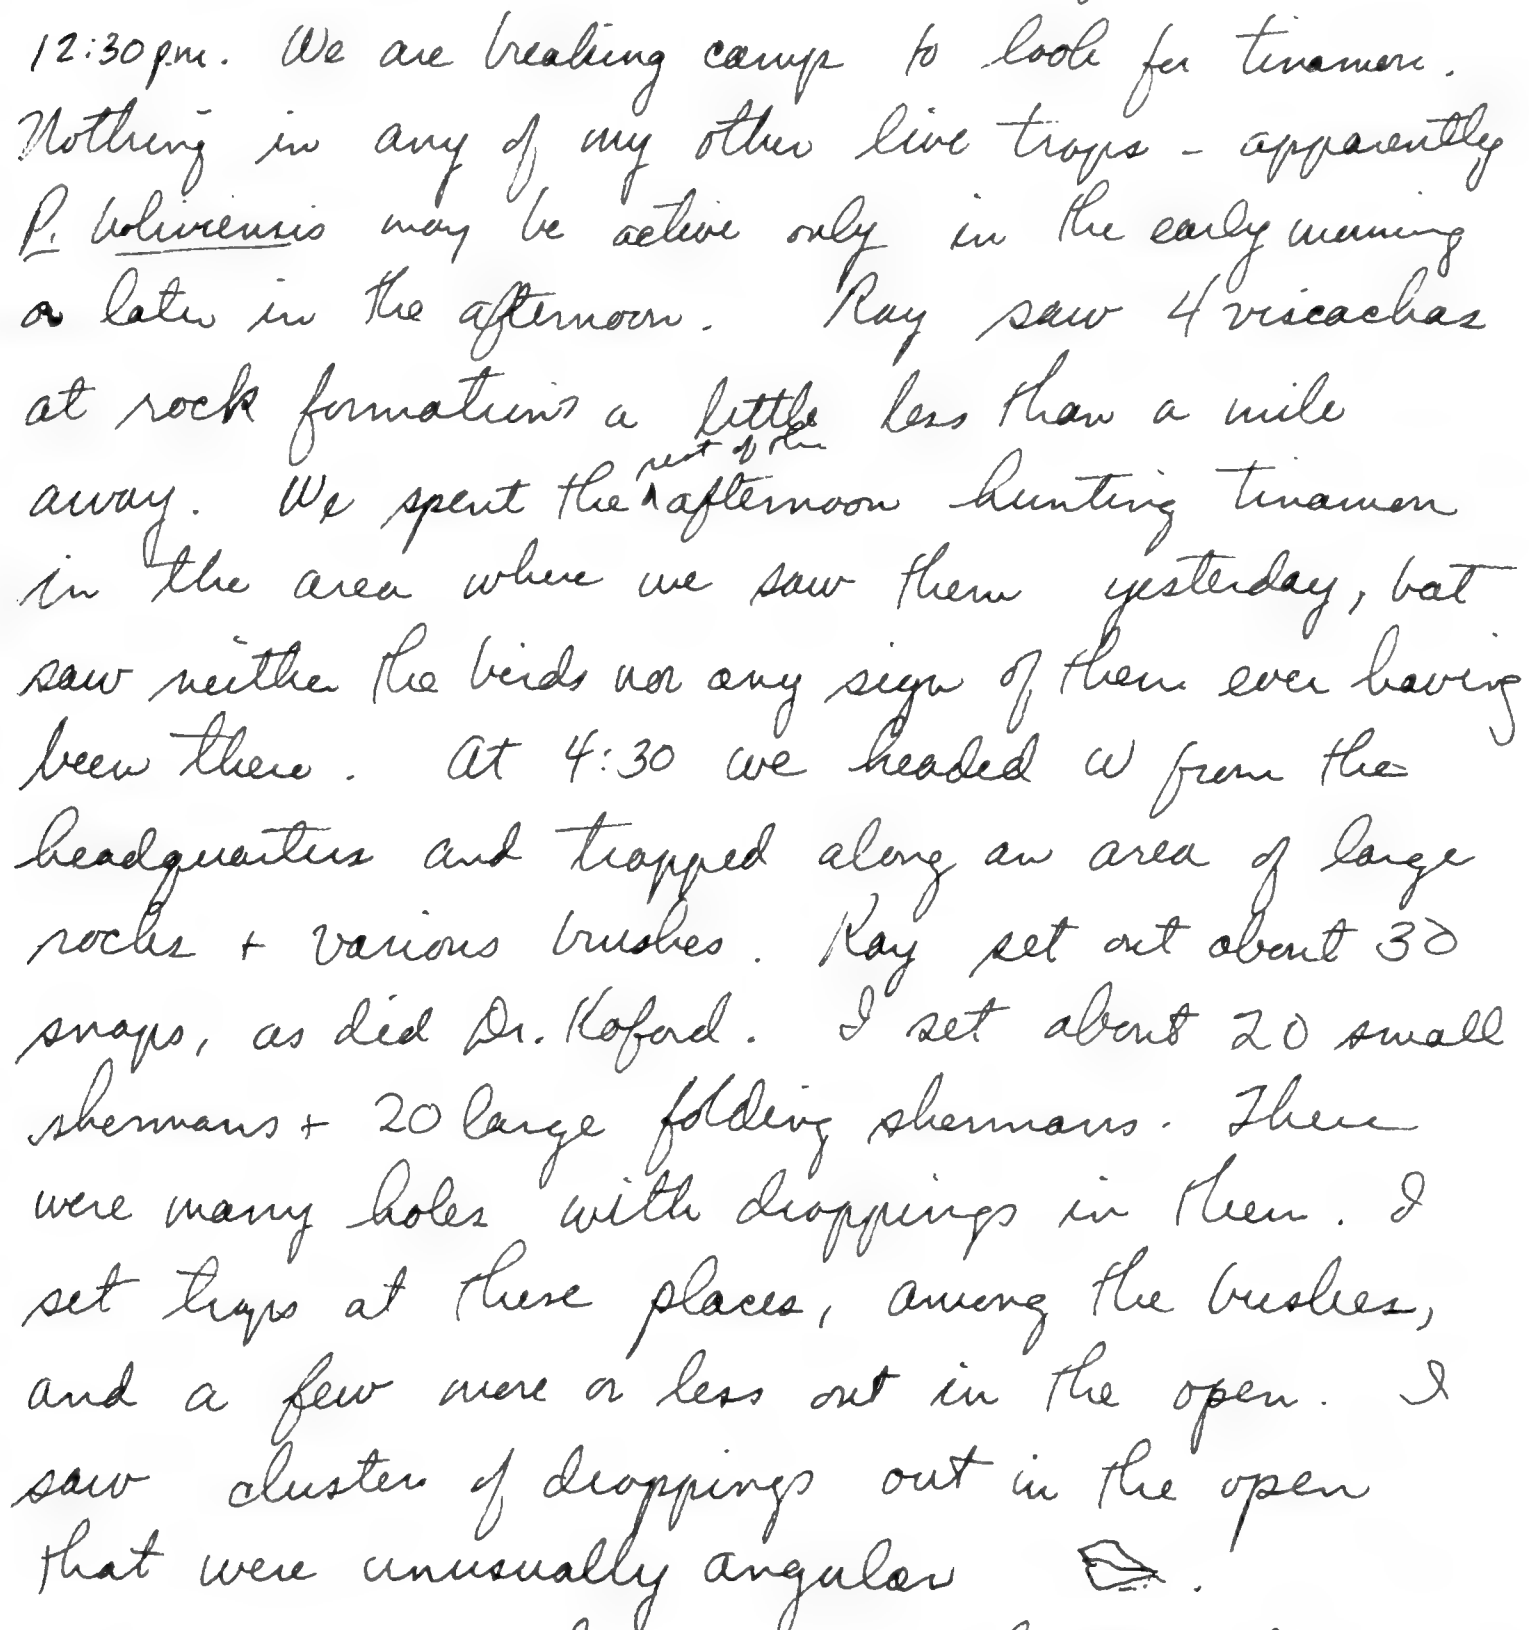 12:30 p.m. We are breaking camp to look for tinamou.
Nothing in any of my other live traps - apparently
P. boliviensis may be active only in the early morning
or later in the afternoon. Ray saw 4 viscachas
at rock formations a little less than a mile
away. We spent the rest of the afternoon hunting tinamou
in the area where we saw them yesterday, but
saw neither the birds nor any sign of them ever having
been there. At 4:30 we headed W from the
headquarters and trapped along an area of large
rocks + various brushes. Ray set out about 30
snaps, as did Dr. Koford. I set about 20 small
shermans + 20 large folding shermans. There
were many holes with droppings in them. I
set traps at these places, among the bushes,
and a few more or less out in the open. I
saw cluster of droppings out in the open
that were unusually angular .